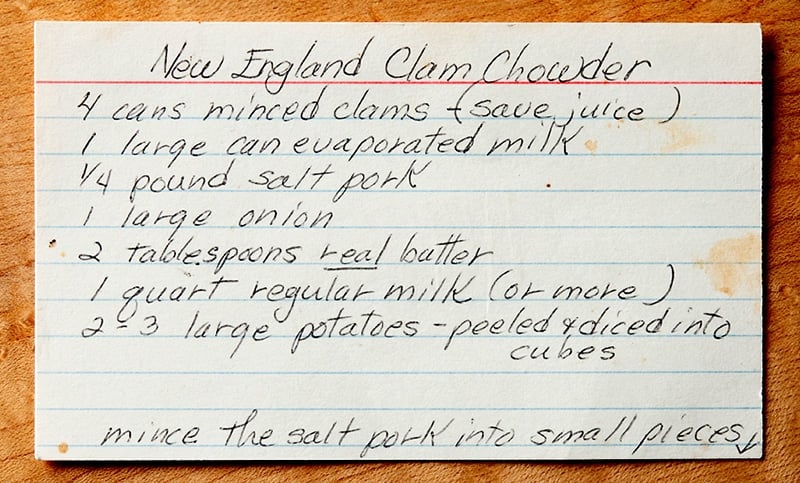 New England Clam Chowder
4 cans minced clams - (save juice)
1 large can evaporated milk
1/4 pound salt pork
1 large onion
2 tablespoons real butter
1 quart regular milk (or more)
2-3 large potatoes - peeled & diced into
cubes
mince the salt pork into small pieces